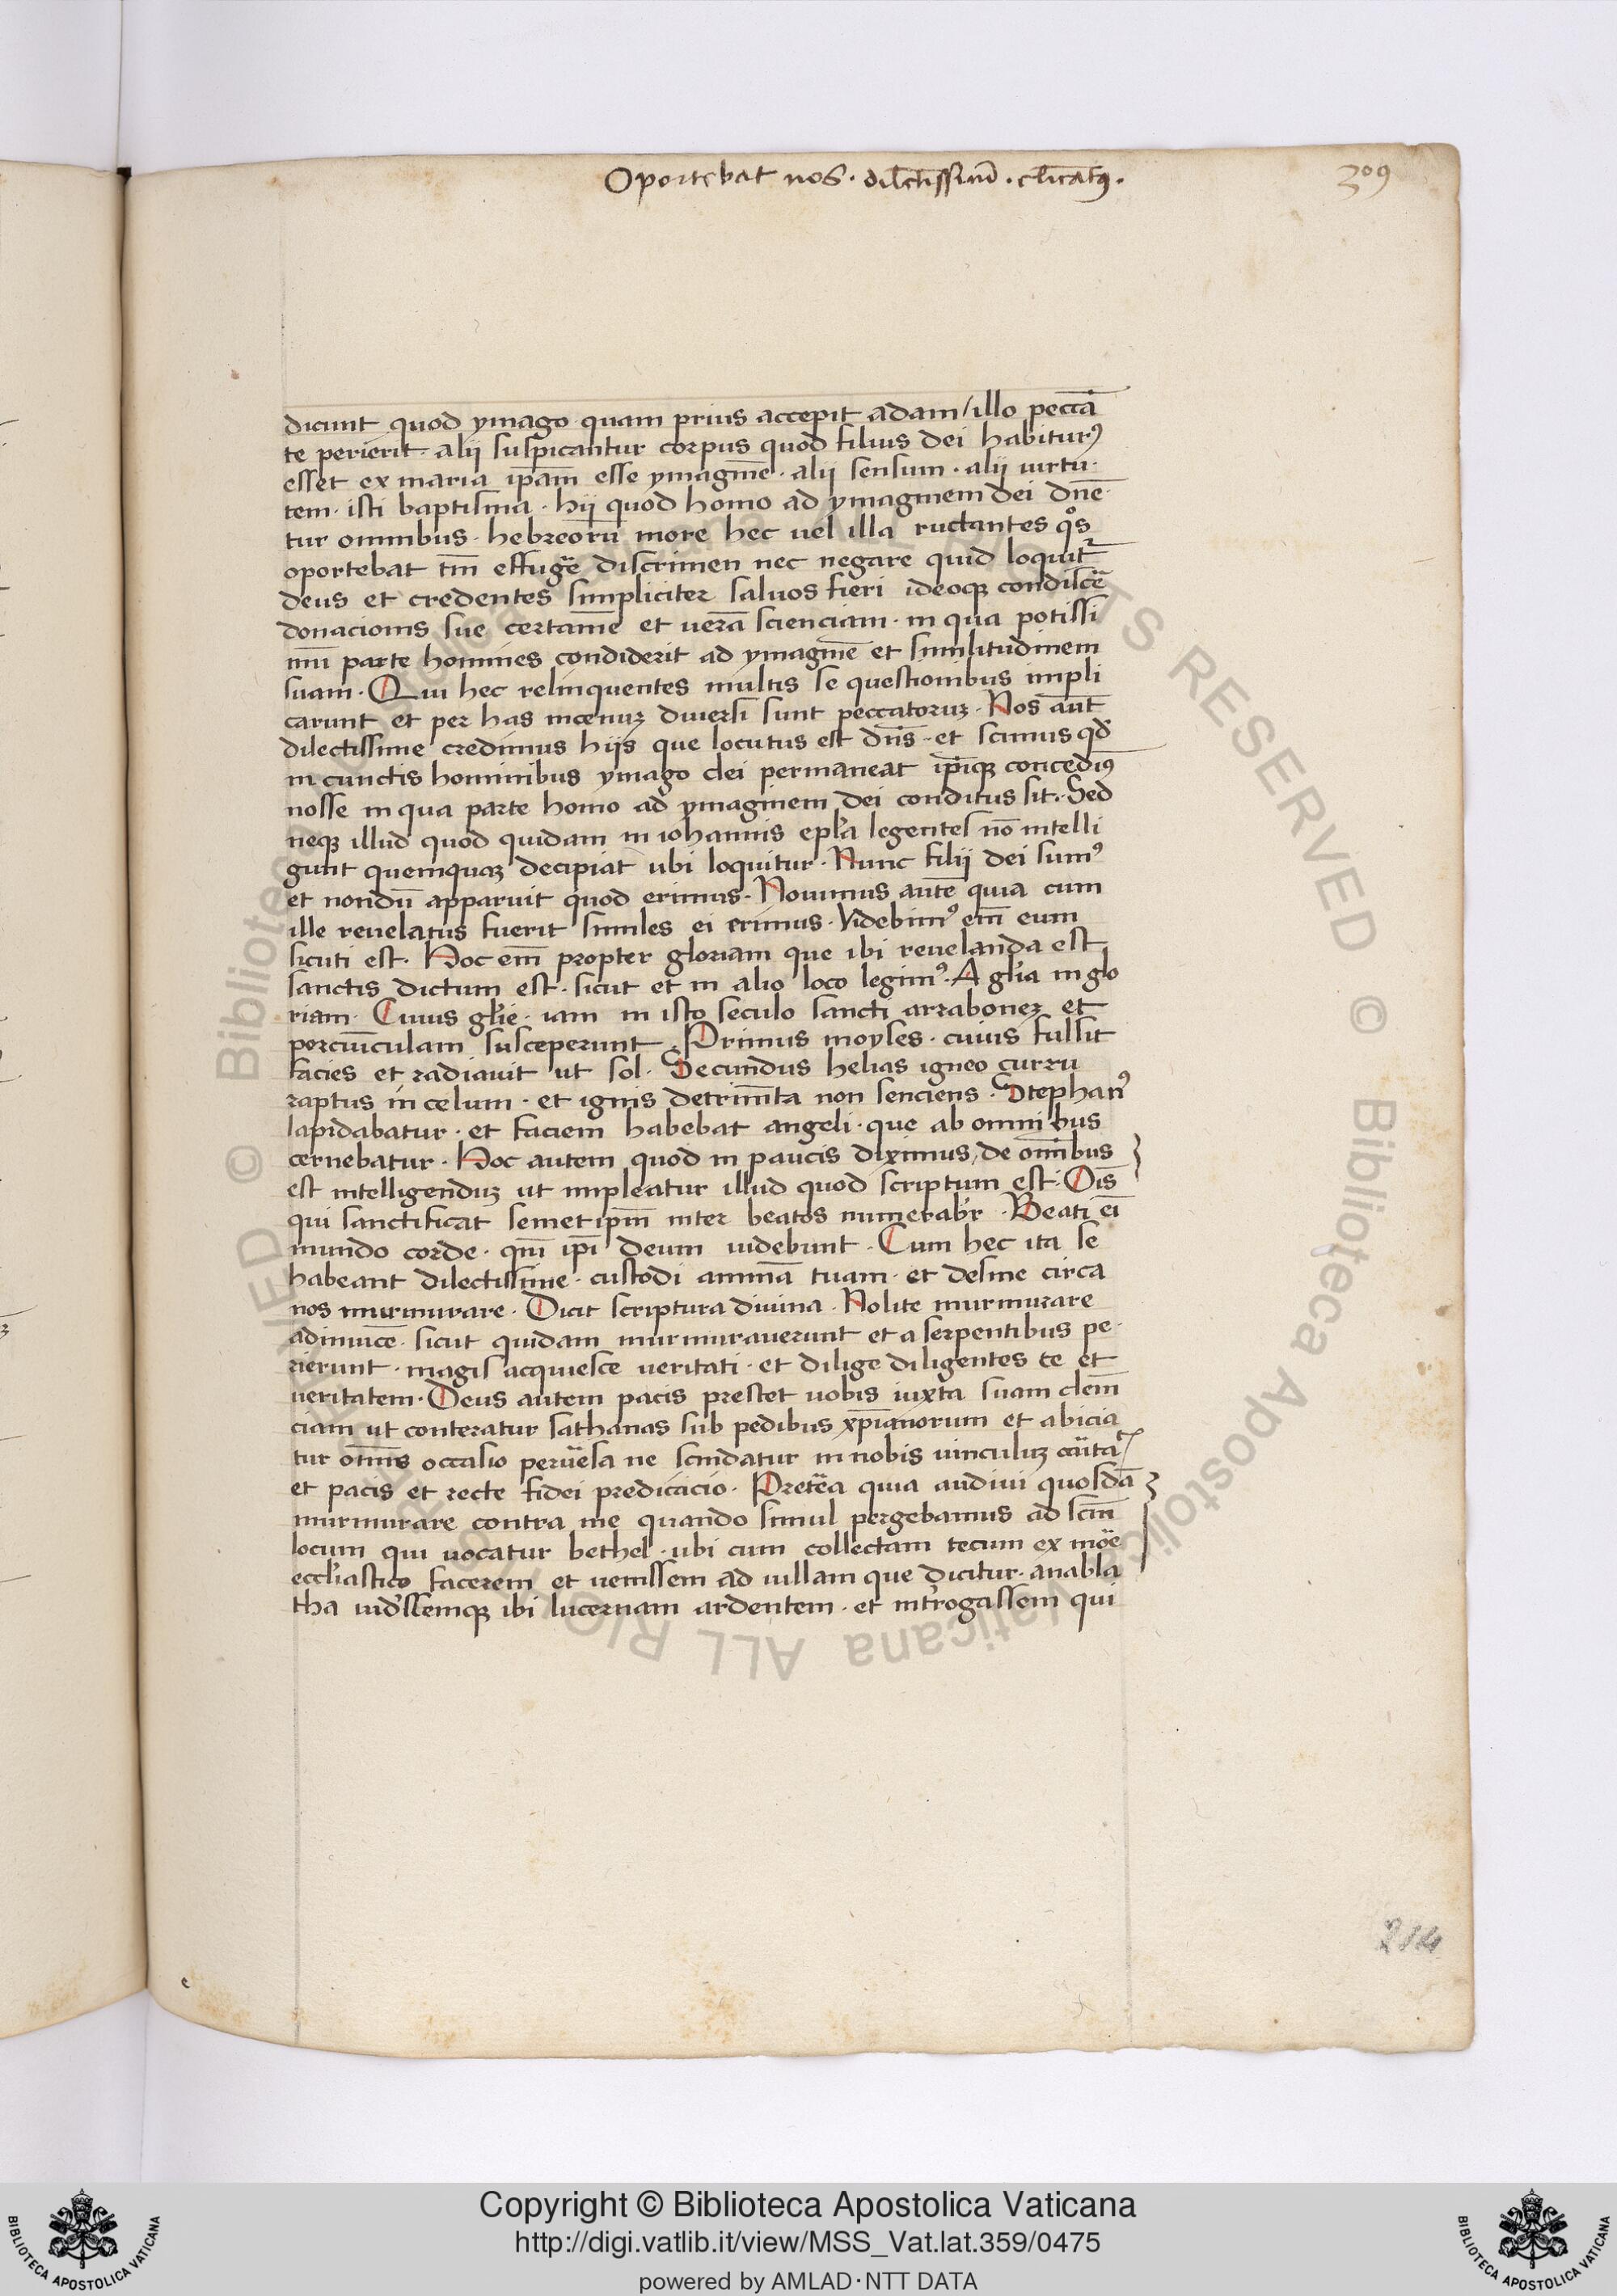 Oportebat nos · dilc̄tissimī · clīcatꝰ ·
309
dicunt quod ymago quam prius accepit adam / illo peccā
te perierit · alij suspicantur corpus quod filius dei habiturꝰ
esset ex maria ip̄am esse ymaginē · alij sensum · alij uirtu
tem · isti baptisma · hij quod homo ad ymaginem dei dn̄e
tur omnibus · hebreorū more hec uel illa ructantes qͦs
oportebat tm̄ effugē discrimen nec negare quid loquitᷣ
deus et credentes simpliciter saluos fieri ideoqꝫ condiscē
donacionis sue certamē et uerā scienciam · in qua potissi
mū parte homines condiderit ad ymaginē et similitudinem
suam · Qui hec relinquentes multis se questionibus impli
carunt et per has incenuꝫ diuersi sunt peccatoruꝫ · Nos aūt
dilectissime credimus hijs que locutus est dn̄s · et scimus qd̄
in cunctis hominibus ymago dei permaneat ip̄iqꝫ concedimꝰ
nosse in qua parte homo ad ymaginem dei conditus sit · Sed
neqꝫ illud quod quidam in iohannis epl̄a legentes nō intelli
gunt quemquaꝫ decipiat ubi loquitur · Nunc filij dei sumꝰ
et nondū apparuit quod erimus · Nouimus autē quia cum
ille reuelatus fuerit similes ei erimus · Videbimꝰ em̄ eum
sicuti est · Hoc em̄ propter gloriam que ibi reuelanda est
sanctis dictum est · sicut et in alio loco legimꝰ · A gl̄ia in glo
riam · Cuius gl̄ie · iam in isto seculo sancti arraboneꝫ et
porciūculam susceperunt · Primus moyses · cuius fulsit
facies et radiauit ut sol · Secundus helias igneo curru
raptus in celum · et ignis detrim̄ta non senciens · Stephanꝰ
lapidabatur · et faciem habebat angeli · que ab omnibus
cernebatur · Hoc autem quod in paucis diximus / de om̄ibus
est intelligenduꝫ ut impleatur illud quod scriptum est · Oīs
qui sanctificat semet ip̄m inter beatos numerabr̄ · Beati ei
mundo corde · qm̄ ip̄i deum uidebunt · Cum hec ita se
habeant dilectissime · custodi animā tuam · et desine circa
nos murmurare · Dicit scriptura diuina · Nolite murmurare
adinuicē · sicut quidam murmurauerunt et a serpentibus pe
rierunt · magis acquiesce ueritati · et dilige diligentes te et
ueritatem · Deus autem pacis prestet uobis iuxta suam clem̄
ciam ut conteratur sathanas sub pedibus xp̄ianorum et abicia
tur om̄is occasio peruēsa ne scindatur in nobis uinculuꝫ cāitat
et pacis et recte fidei predicacio · Pretēa quia audiui quosdā
murmurare contra me quando simul pergebamus ad scm̄
locum qui uocatur bethel · ubi cum collectam tecum ex moē
eccl̄iastico facerem et uenissem ad uillam que dicitur · anabla
tha uidissemqꝫ ibi lucernam ardentem · et int̄rogassem qui
214
Copyright © Biblioteca Apostolica Vaticana
http://digi.vatlib.it/view/MSS_Vat.lat.359/0475
powered by AMLAD·NTT DATA
BIBLIOTECA APOSTOLICA VATICANA
BIBLIOTECA APOSTOLICA VATICANA